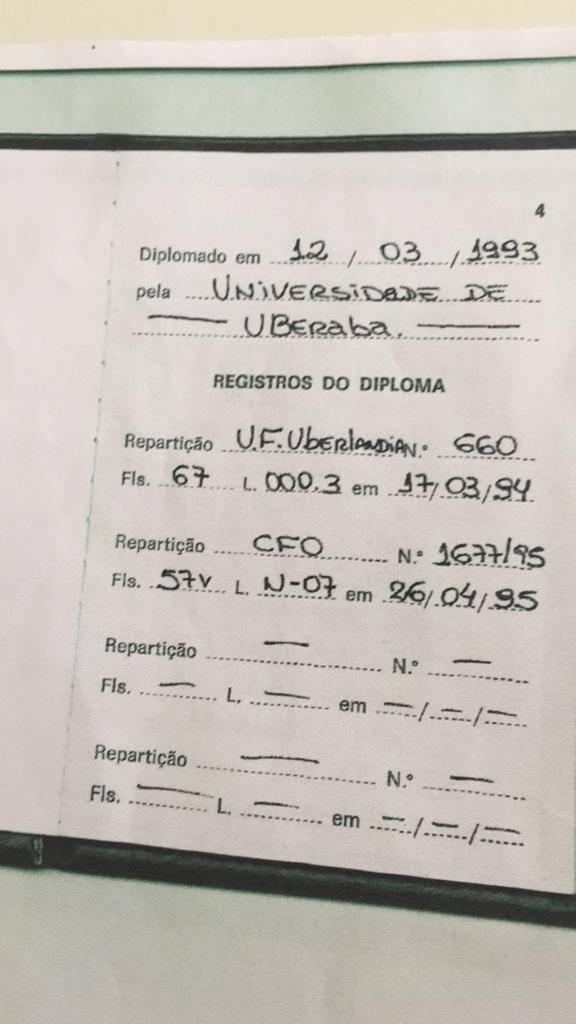 4
Diplomado em 12 / 03 / 1993
pela UNIVERSIDADE DE
— UBERABA. —
REGISTROS DO DIPLOMA
Repartição U.F.UBERLANDIA N.º 660
Fls. 67 L. 000.3 em 17/03/94
Repartição CFO N.º 1677/95
Fls. 57v L. N-07 em 26/04/95
Repartição — N.º —
Fls. — L. — em —/—/—
Repartição — N.º —
Fls. — L. — em —/—/—